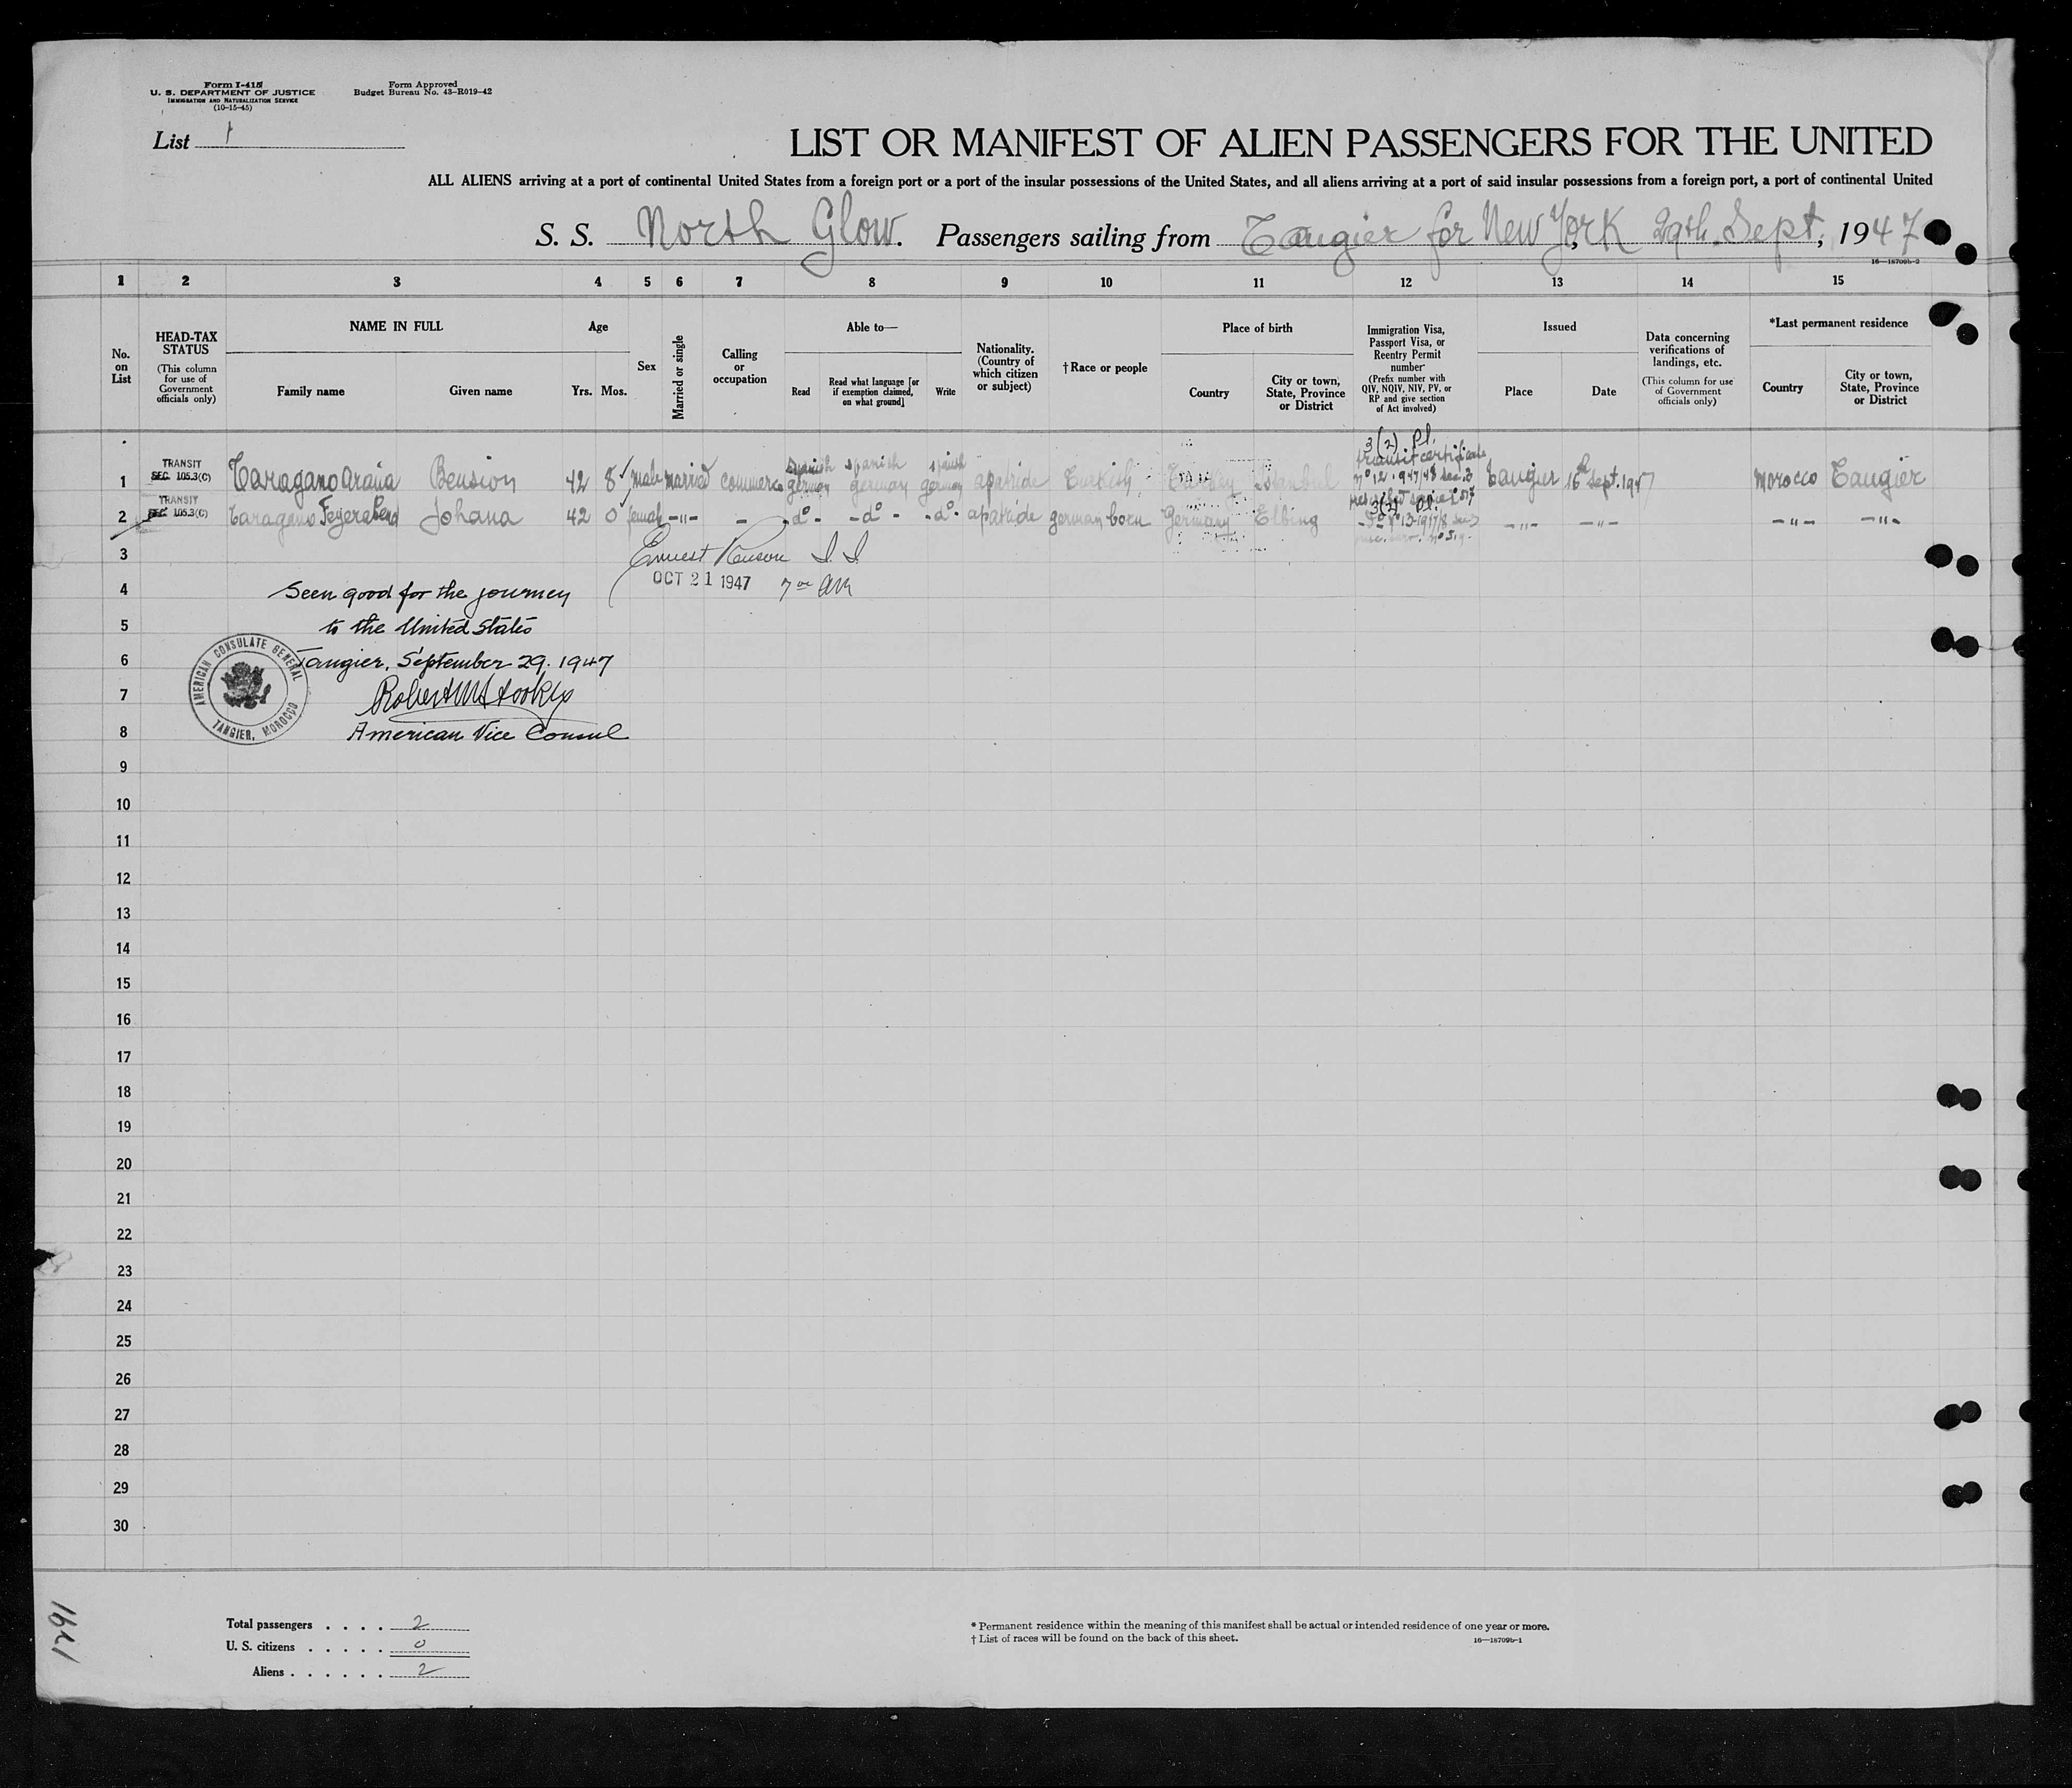 Form I-415
U. S. DEPARTMENT OF JUSTICE
IMMIGRATION AND NATURALIZATION SERVICE
(10-15-45)
Form Approved
Budget Bureau No. 43-R019-42
List 1
LIST OR MANIFEST OF ALIEN PASSENGERS FOR THE UNITED
ALL ALIENS arriving at a port of continental United States from a foreign port or a port of the insular possessions of the United States, and all aliens arriving at a port of said insular possessions from a foreign port, a port of continental United
S. S. North Glow. Passengers sailing from Tangier for New York, 29th Sept, 1947
16—18709b-2
1 2 3 4 5 6 7 8 9 10 11 12 13 14 15
No. on List
HEAD-TAX STATUS
(This column for use of Government officials only)
NAME IN FULL
Family name Given name
Age
Yrs. Mos.
Sex
Married or single
Calling or occupation
Able to—
Read
Read what language [or if exemption claimed, on what ground]
Write
Nationality. (Country of which citizen or subject)
† Race or people
Place of birth
Country
City or town, State, Province or District
Immigration Visa, Passport Visa, or Reentry Permit number
(Prefix number with QIV, NQIV, NIV, PV, or RP and give section of Act involved)
Issued
Place Date
Data concerning verifications of landings, etc.
(This column for use of Government officials only)
*Last permanent residence
Country
City or town, State, Province or District
3(2) Pl.
transit certificate
TRANSIT
SEC. 105.3(C)
1 Taragano Araia Bension 42 8 male married commerce spanish german spanish german spanish german apatride Turkish Turkey Istanbul nº 12 · 947/48 sec. 3 Tangier 16th Sept. 1947 Morocco Tangier
3(2) Pl.
TRANSIT
SEC. 105.3(C)
2 Taragano Feyerabend Johana 42 0 female -"- - -dº- -dº- -dº- apatride german born Germany Elbing -dº- nº 13-1947/8 sec 3 -"- -"- -"- -"-
3
Ernest I. I.
OCT 21 1947 7 00 AM
4 Seen good for the journey
5 to the United States
6 Tangier, September 29. 1947
7 Robert
8 American Vice Consul
AMERICAN CONSULATE GENERAL
TANGIER, MOROCCO
9
10
11
12
13
14
15
16
17
18
19
20
21
22
23
24
25
26
27
28
29
30
Total passengers . . . . 2
U. S. citizens . . . . . 0
Aliens . . . . . . 2
* Permanent residence within the meaning of this manifest shall be actual or intended residence of one year or more.
† List of races will be found on the back of this sheet.
16—18709b-1